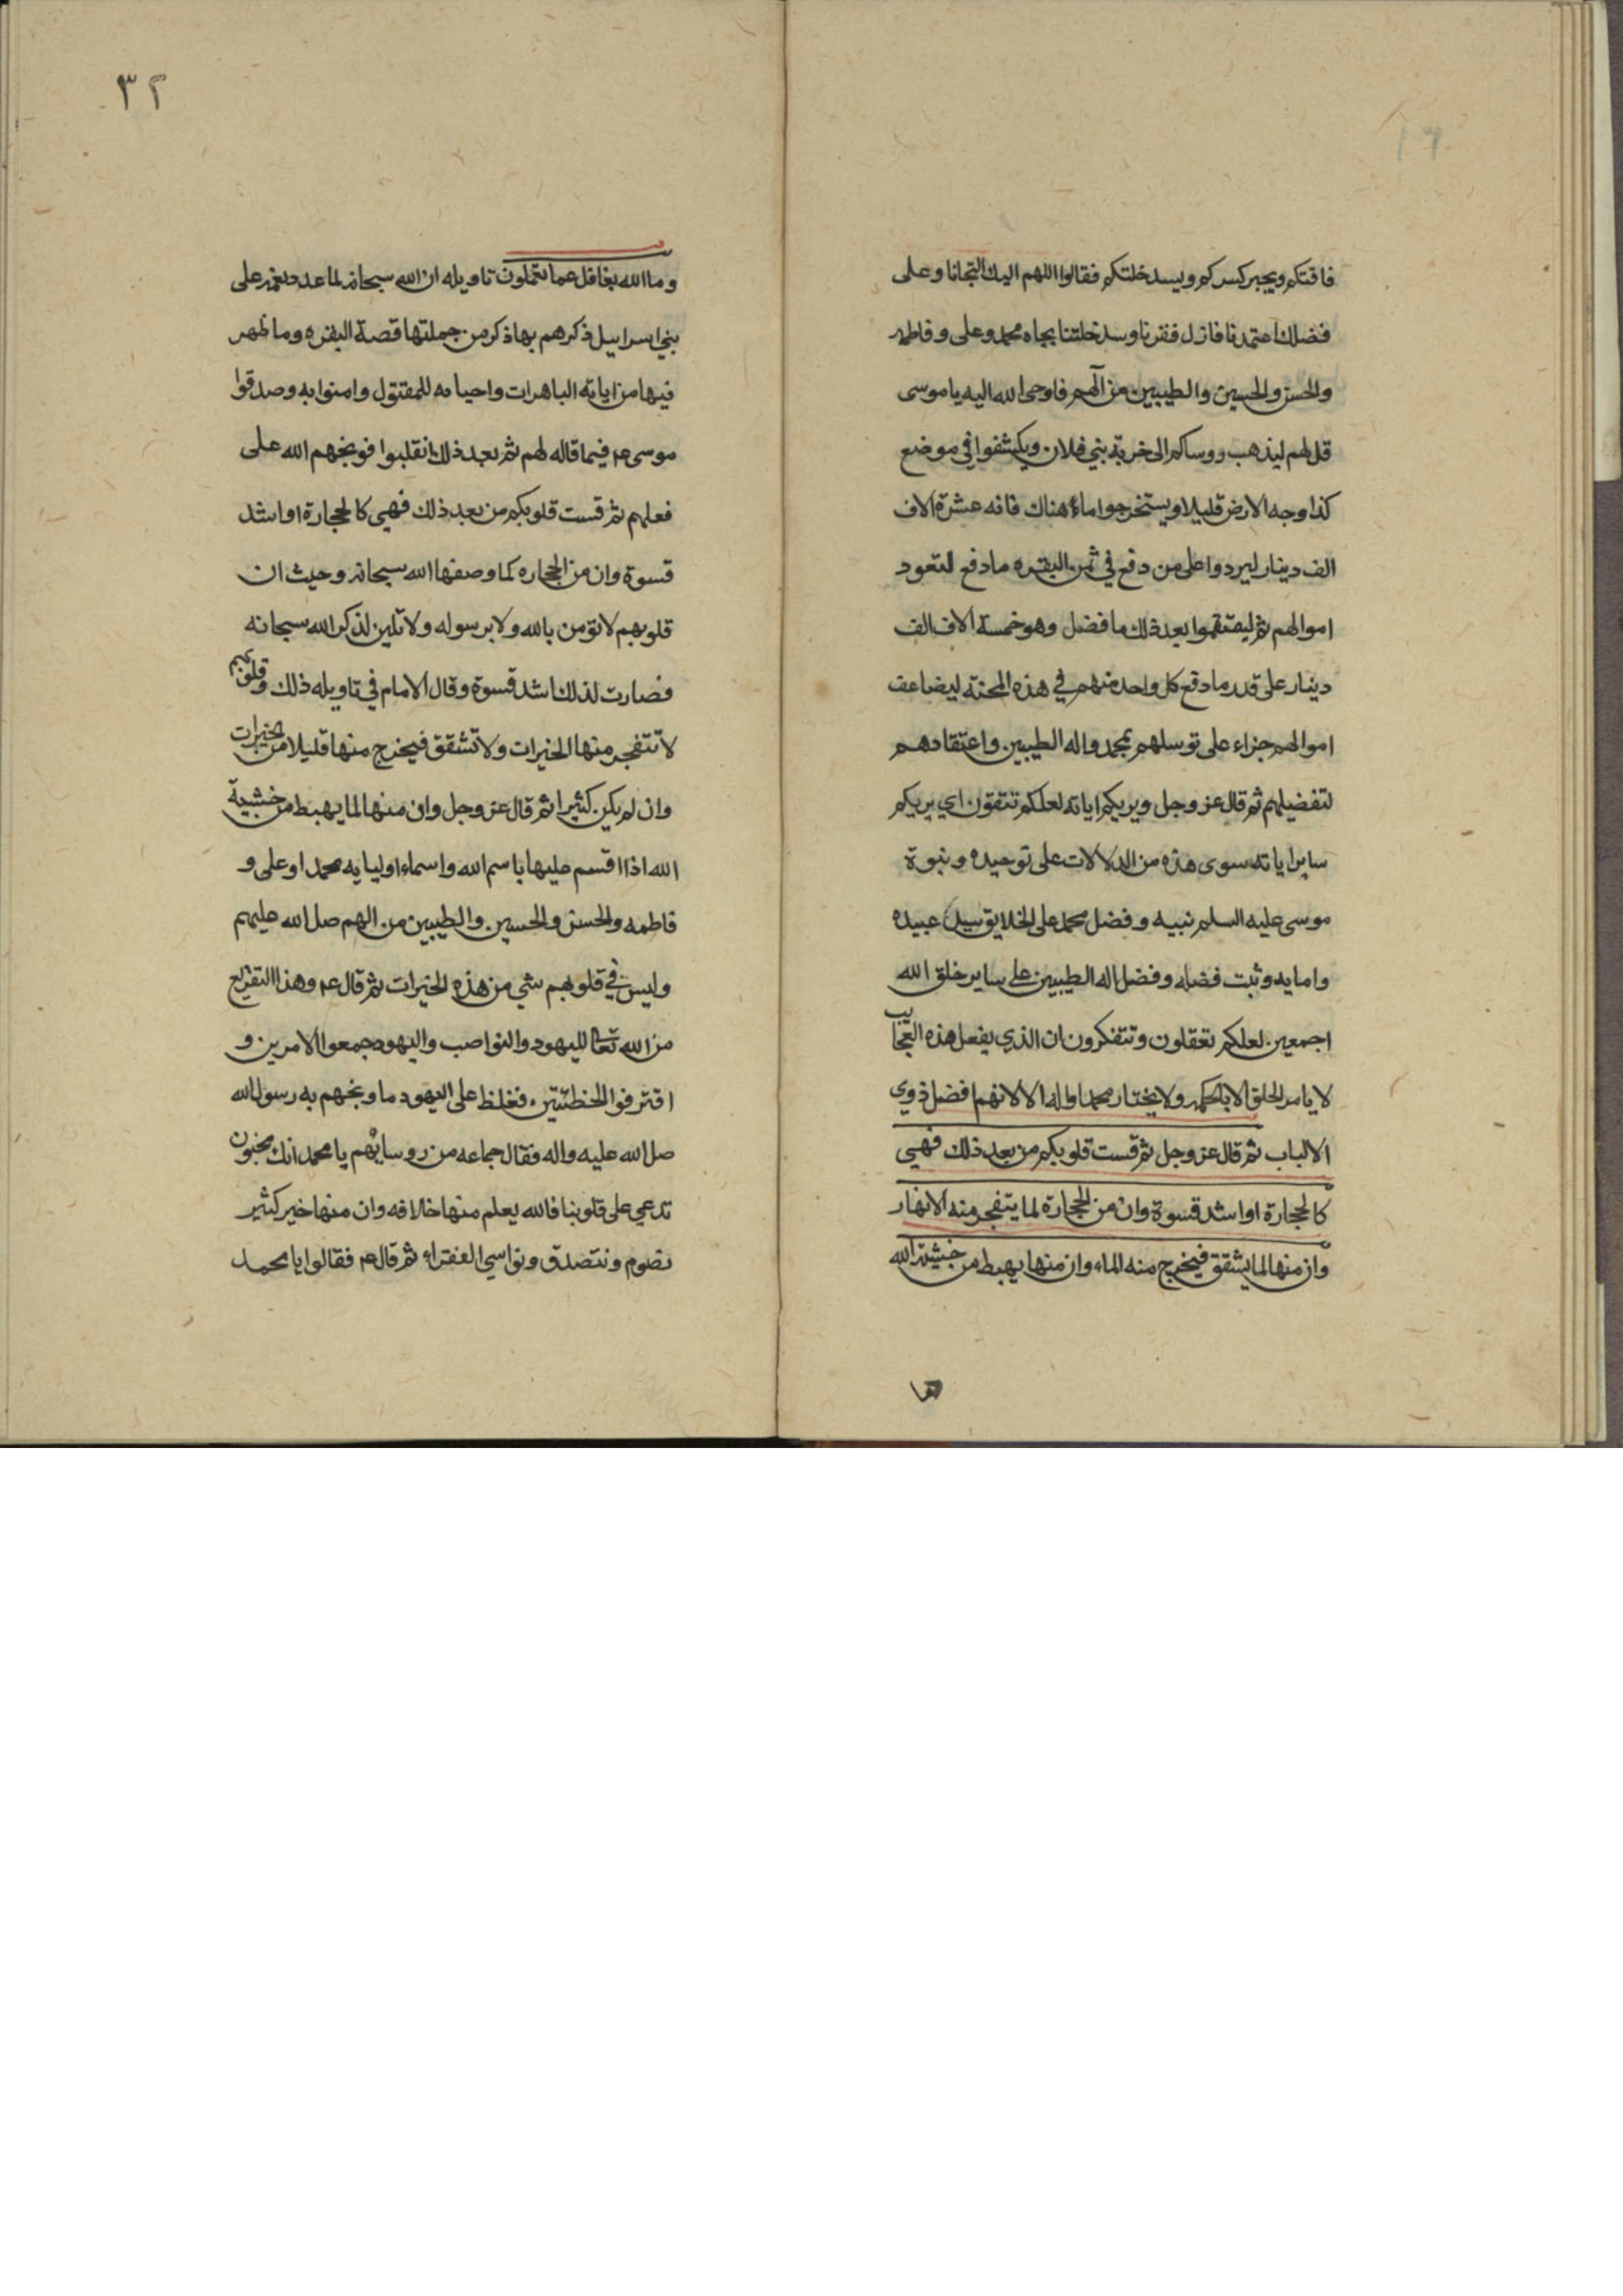 فاقتكم ويجبر كسركم ويسد خلتكم فقالوا اللهم اليك التجانا وعلى
فضلك اعتمدنا فازل فقرنا وسد خلتنا بجاه محمد وعلى وفاطمه
والحسن والحسين والطيبين من آلهم فاوحى الله اليه يا موسى
قل لهم ليذهب روساكم الى خربة بني فلان ويكشفوا في موضع
كذا وجه الارض قليلا ويستخرجوا ماء هناك فانه عشرة الاف
الف دينار ليردوا على من دفع في ثمن البقره ما دفع لتعود
اموالهم ثم ليقتقموا بعد ذلك ما فضل وهو خمسة الاف الف
دينار على قدر ما دفع كل واحد منهم في هذه المحنة ليضاعف
اموالهم جزاء على توسلهم بمحمد واله الطيبين واعتقادهم
لتفضيلهم ثم قال عز وجل ويريكم اياته لعلكم تتقون اي يريكم
ساير اياته سوى هذه من الدلالات على توحيده ونبوة
موسى عليه السلم نبيه وفضل محمد على الخلايق سيد عبيده
وامايه وثبت فضله وفضل اله الطيبين على ساير خلق الله
اجمعين لعلكم تعقلون وتتفكرون ان الذي يفعل هذه العجايب
لا يامر الخلق الا بالحكمه ولا يختار محمدا واله الا لانهم افضل ذوي
الالباب ثم قال عز وجل ثم قست قلوبكم من بعد ذلك فهي
كالحجارة او اشد قسوة وان من الحجارة لما يتفجر منه الانهار
وان منها لما يشقق فيخرج منه الماء وان منها يهبط من خشية الله
٣٢
وما الله بغافل عما تعملون تاويله ان الله سبحانه لما عدد نعمه على
بني اسراييل ذكرهم بها ذكر من جملتها قصة البقره وما ظهر
فيها من اياته الباهرات واحيايه للمقتول وامنوا به وصدقوا
موسى عم فيما قاله لهم ثم بعد ذلك انقلبوا فوبخهم الله على
فعلهم ثم قست قلوبكم من بعد ذلك فهي كالحجارة او اشد
قسوة وان من الحجاره كما وصفها الله سبحانه وحيث ان
قلوبهم لا تومن بالله ولا برسوله ولا تلين لذكر الله سبحانه
فصارت لذلك اشد قسوة وقال الامام في تاويله ذلك وقلوبهم
لا تتفجر منها الخيرات ولا تشقق فيخرج منها قليلا من الخيرات
وان لم يكن كثيرا ثم قال عز وجل وان منها لما يهبط من خشية
الله اذا اقسم عليها باسم الله واسماء اوليايه محمدا وعلى و
فاطمه والحسن والحسين والطيبين من الهم صل الله عليهم
وليس في قلوبهم شي من هذه الخيرات ثم قال عم وهذا التقريع
من الله تعالى لليهود والنواصب واليهود جمعوا الامرين و
اقترفوا الخطئتين فغلظ على اليهود ما وبخهم به رسول الله
صل الله عليه واله فقال جماعه من روسايهم يا محمد انك مجنون
تدعي على قلوبنا فالله يعلم منها خلافه وان منها خير كثير
نصوم ونتصدق ونواسي الفقراء ثم قال عم فقالوا يا محمد